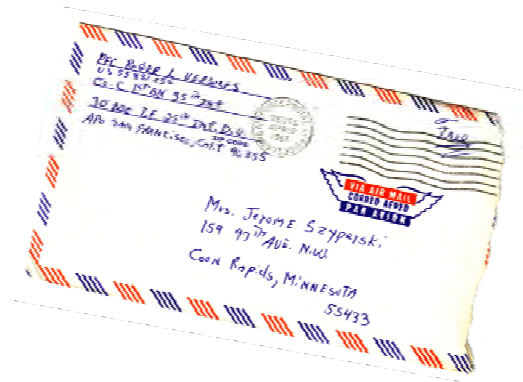 PFC Roger L.
Co. C 1st Bn 35th Inf
3D BDE 25th Inf. Div.
APO San Francisco, Calif 96355
Free
VIA AIR MAIL
CORREO AEREO
PAR AVION
Mrs. Jerome Szyperski
159 97th AVE. N.W.
Coon Rapids, Minnesota
55433